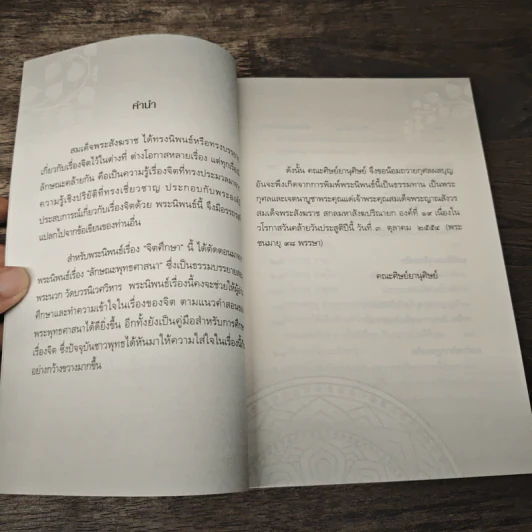 คำนำ
สมเด็จพระสังฆราช ได้ทรงนิพนธ์หรือทรงบรรยาย
เกี่ยวกับเรื่องจิตไว้ในต่างที่ ต่างโอกาสหลายเรื่อง แต่ทุกเรื่อง
ลักษณะคล้ายกัน คือเป็นความรู้เรื่องจิตที่ทรงประมวล
ความรู้เชิงปริยัติที่ทรงเชี่ยวชาญ ประกอบกับ
ประสบการณ์เกี่ยวกับเรื่องจิตด้วย พระนิพนธ์นี้ จึงมี
แปลกไปจากข้อเขียนของท่านอื่น
สำหรับพระนิพนธ์เรื่อง “จิตศึกษา” นี้ ได้ตัดตอนมาจาก
พระนิพนธ์เรื่อง “ลักษณะพุทธศาสนา” ซึ่งเป็นธรรมบรรยาย
พระนวก วัดบวรนิเวศวิหาร พระนิพนธ์เรื่องนี้คงจะช่วยให้
ศึกษาและทำความเข้าใจในเรื่องของจิต ตามแนวคำสอน
พระพุทธศาสนาได้ดียิ่งขึ้น อีกทั้งยังเป็นคู่มือสำหรับการศึกษา
เรื่องจิต ซึ่งปัจจุบันชาวพุทธได้หันมาให้ความใส่ใจในเรื่องนี้
อย่างกว้างขวางมากขึ้น
ดังนั้น คณะศิษย์ยานุศิษย์ จึงขอน้อมถวายกุศลผลบุญ
อันจะพึงเกิดจากการพิมพ์พระนิพนธ์นี้เป็นธรรมทาน เป็นพระ
กุศลและเจตนาบูชาพระคุณแด่เจ้าพระคุณสมเด็จพระญาณสังวร
สมเด็จพระสังฆราช สกลมหาสังฆปริณายก องค์ที่ ๑๙ เนื่องใน
วโรกาสวันคล้ายวันประสูติปีนี้ วันที่ ๓ ตุลาคม ๒๕๕๔ (พระ
ชนมายุ ๙๘ พรรษา)
คณะศิษย์ยานุศิษย์